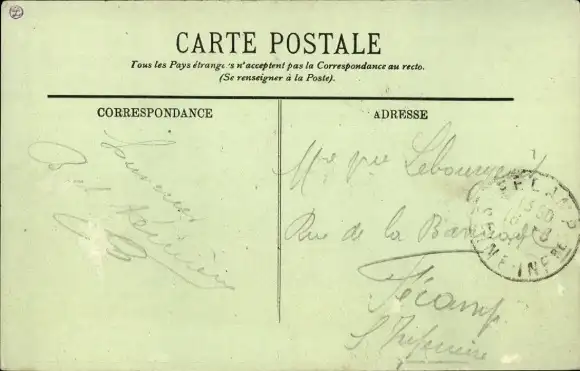 CARTE POSTALE
Tous les Pays étrangers n'acceptent pas la Correspondance au recto.
(Se renseigner à la Poste).
CORRESPONDANCE
ADRESSE
Souvenir
Lebourgeois
Rue de la
Fécamp
S Inférieure
FECAMP
SEINE-INFRE